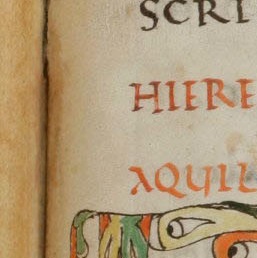 SCRI
HIERE
AQUIL